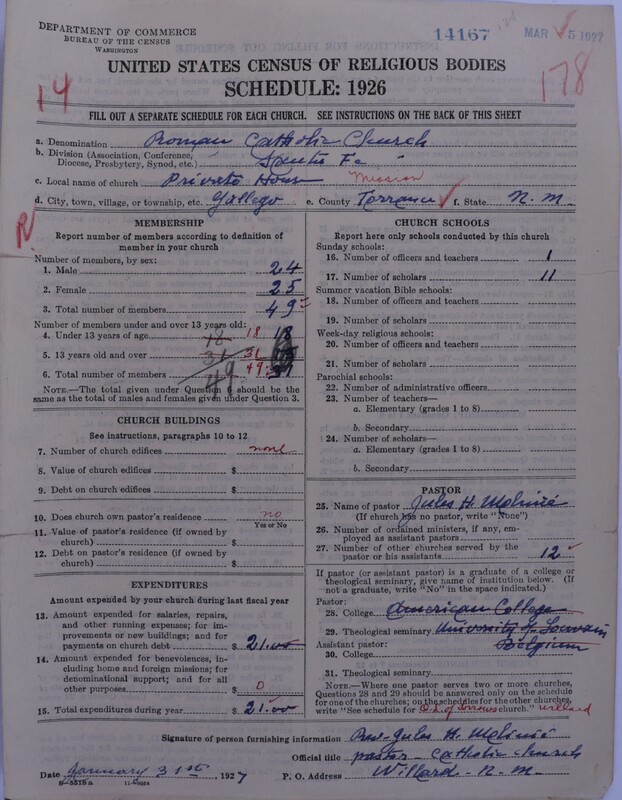 DEPARTMENT OF COMMERCE
BUREAU OF THE CENSUS
WASHINGTON
14167
MAR 5 1927
UNITED STATES CENSUS OF RELIGIOUS BODIES
SCHEDULE: 1926
14
178
FILL OUT A SEPARATE SCHEDULE FOR EACH CHURCH. SEE INSTRUCTIONS ON THE BACK OF THIS SHEET
a. Denomination Roman Catholic Church
b. Division (Association, Conference, Diocese, Presbytery, Synod, etc.) Santa Fe
c. Local name of church Private House Mission
d. City, town, village, or township, etc. Gallego e. County Torrance f. State N. M.
R
MEMBERSHIP
Report number of members according to definition of
member in your church
Number of members, by sex:
1. Male 24
2. Female 25
3. Total number of members 49
Number of members under and over 13 years old:
4. Under 13 years of age 18 18 18
5. 13 years old and over 31 31
6. Total number of members 49 49
NOTE.—The total given under Question 6 should be the
same as the total of males and females given under Question 3.
CHURCH BUILDINGS
See instructions, paragraphs 10 to 12
7. Number of church edifices none
8. Value of church edifices $
9. Debt on church edifices $
10. Does church own pastor's residence no
Yes or No
11. Value of pastor's residence (if owned by
church) $
12. Debt on pastor's residence (if owned by
church) $
EXPENDITURES
Amount expended by your church during last fiscal year
13. Amount expended for salaries, repairs,
and other running expenses; for im-
provements or new buildings; and for
payments on church debt $ 21.00
14. Amount expended for benevolences, in-
cluding home and foreign missions; for
denominational support; and for all
other purposes $ 0
15. Total expenditures during year $ 21.00
CHURCH SCHOOLS
Report here only schools conducted by this church
Sunday schools:
16. Number of officers and teachers 1
17. Number of scholars 11
Summer vacation Bible schools:
18. Number of officers and teachers
19. Number of scholars
Week-day religious schools:
20. Number of officers and teachers
21. Number of scholars
Parochial schools:
22. Number of administrative officers
23. Number of teachers—
a. Elementary (grades 1 to 8)
b. Secondary
24. Number of scholars—
a. Elementary (grades 1 to 8)
b. Secondary
PASTOR
25. Name of pastor Jules H. Molinié
(If church has no pastor, write "None")
26. Number of ordained ministers, if any, em-
ployed as assistant pastors
27. Number of other churches served by the
pastor or his assistants 12
If pastor (or assistant pastor) is a graduate of a college or
theological seminary, give name of institution below. (If
not a graduate, write "No" in the space indicated.)
Pastor:
28. College American College
29. Theological seminary University of Louvain
Assistant pastor: Belgium
30. College
31. Theological seminary
NOTE.—Where one pastor serves two or more churches,
Questions 28 and 29 should be answered only on the schedule
for one of the churches; on the schedules for the other churches,
write "See schedule for O. L. of Sorrows church." Willard
Signature of person furnishing information Rev. Jules H. Molinié
Official title pastor - Catholic Church
Date January 31st, 1927 P. O. Address Willard - N. M.